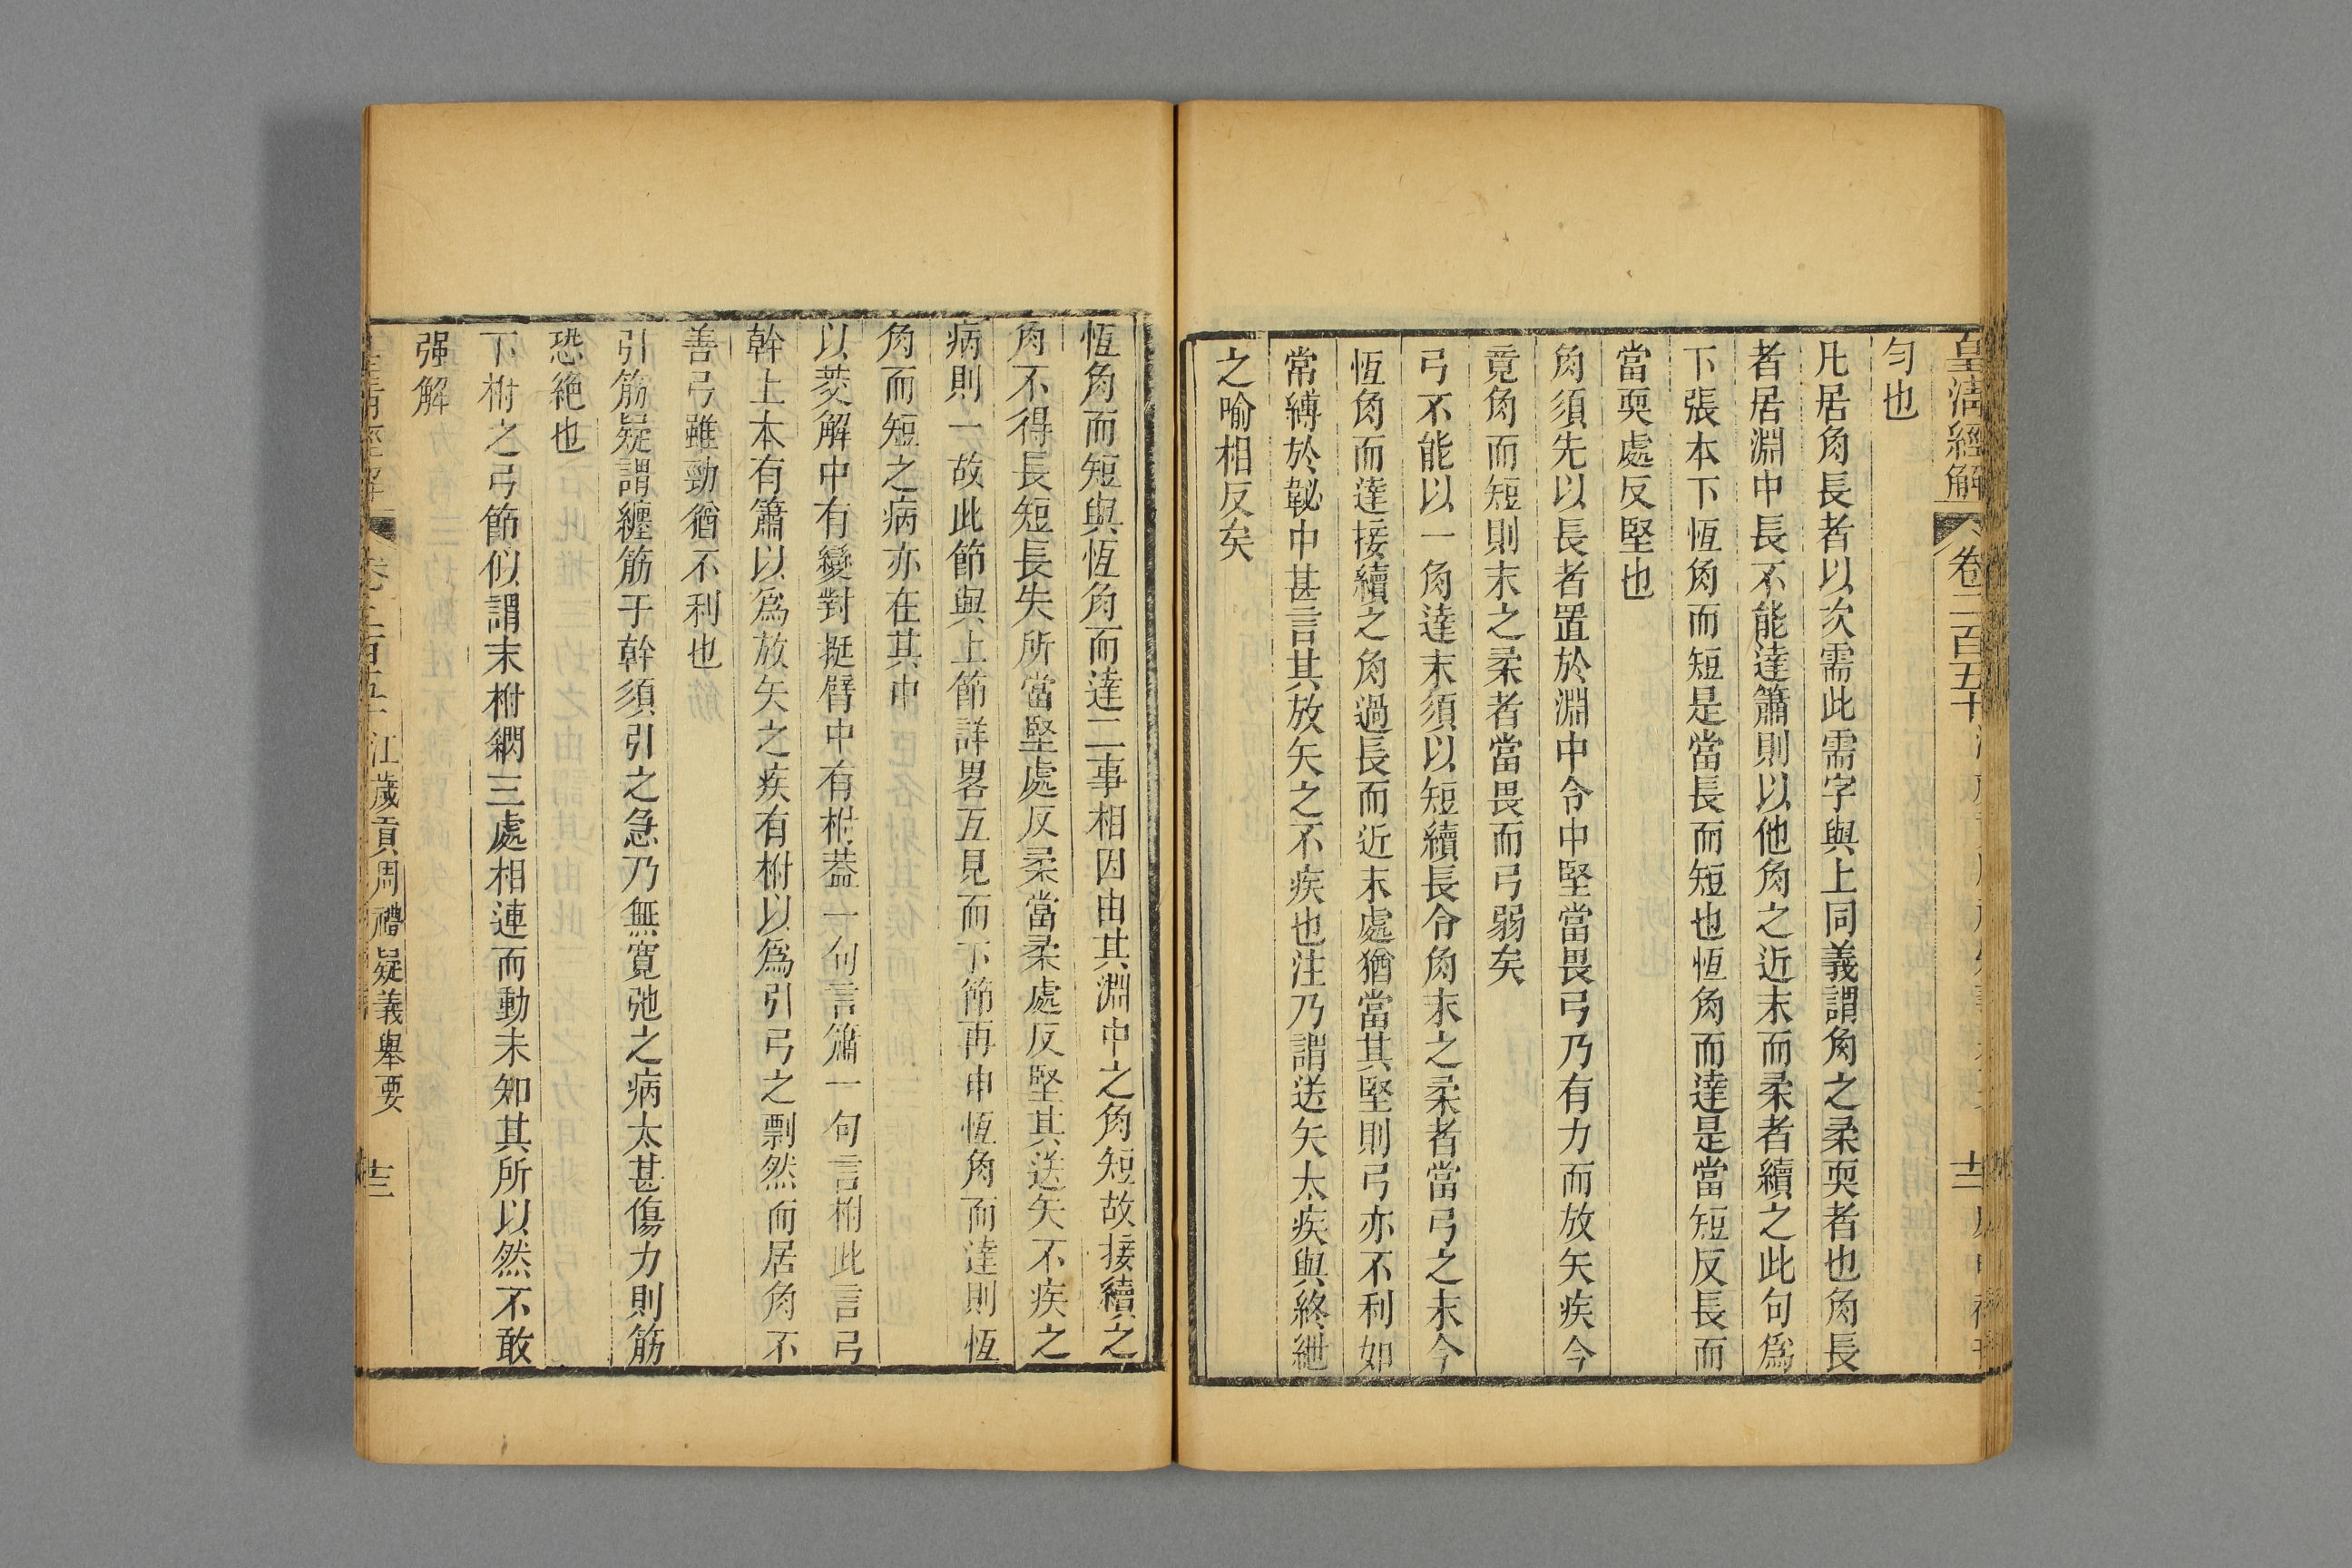 皇清經解 卷二百五十 十二
勻也
凡居角長者以次需此需字與上同義謂角之柔耎者也角長
者居淵中長不能達簫則以他角之近末而柔者續之此句爲
下張本下恆角而短是當長而短也恆角而達是當短反長而
當耎處反堅也
角須先以長者置於淵中令中堅當畏弓乃有力而放矢疾今
竟角而短則末之柔者當畏而弓弱矣
弓不能以一角達末須以短續長令角末之柔者當弓之末今
恆角而達接續之角過長而近末處猶當其堅則弓亦不利如
常縛於䪐中甚言其放矢之不疾也注乃謂送矢太疾與終紲
之喻相反矣
恆角而短與恆角而達二事相因由其淵中之角短故接續之
角不得長短長失所當堅處反柔當柔處反堅其送矢不疾之
病則一故此節與上節詳畧互見而下節再申恆角而達則恆
角而短之病亦在其中
以茭解中有變對挺臂中有柎葢一句言簫一句言柎此言弓
幹上本有簫以爲放矢之疾有柎以爲引弓之剽然而居角不
善弓雖勁猶不利也
引筋疑謂纏筋于幹須引之急乃無寬弛之病太甚傷力則筋
恐絶也
下柎之弓節似謂末柎網三處相連而動未知其所以然不敢
强解
江歲貢周禮疑義舉要 十三